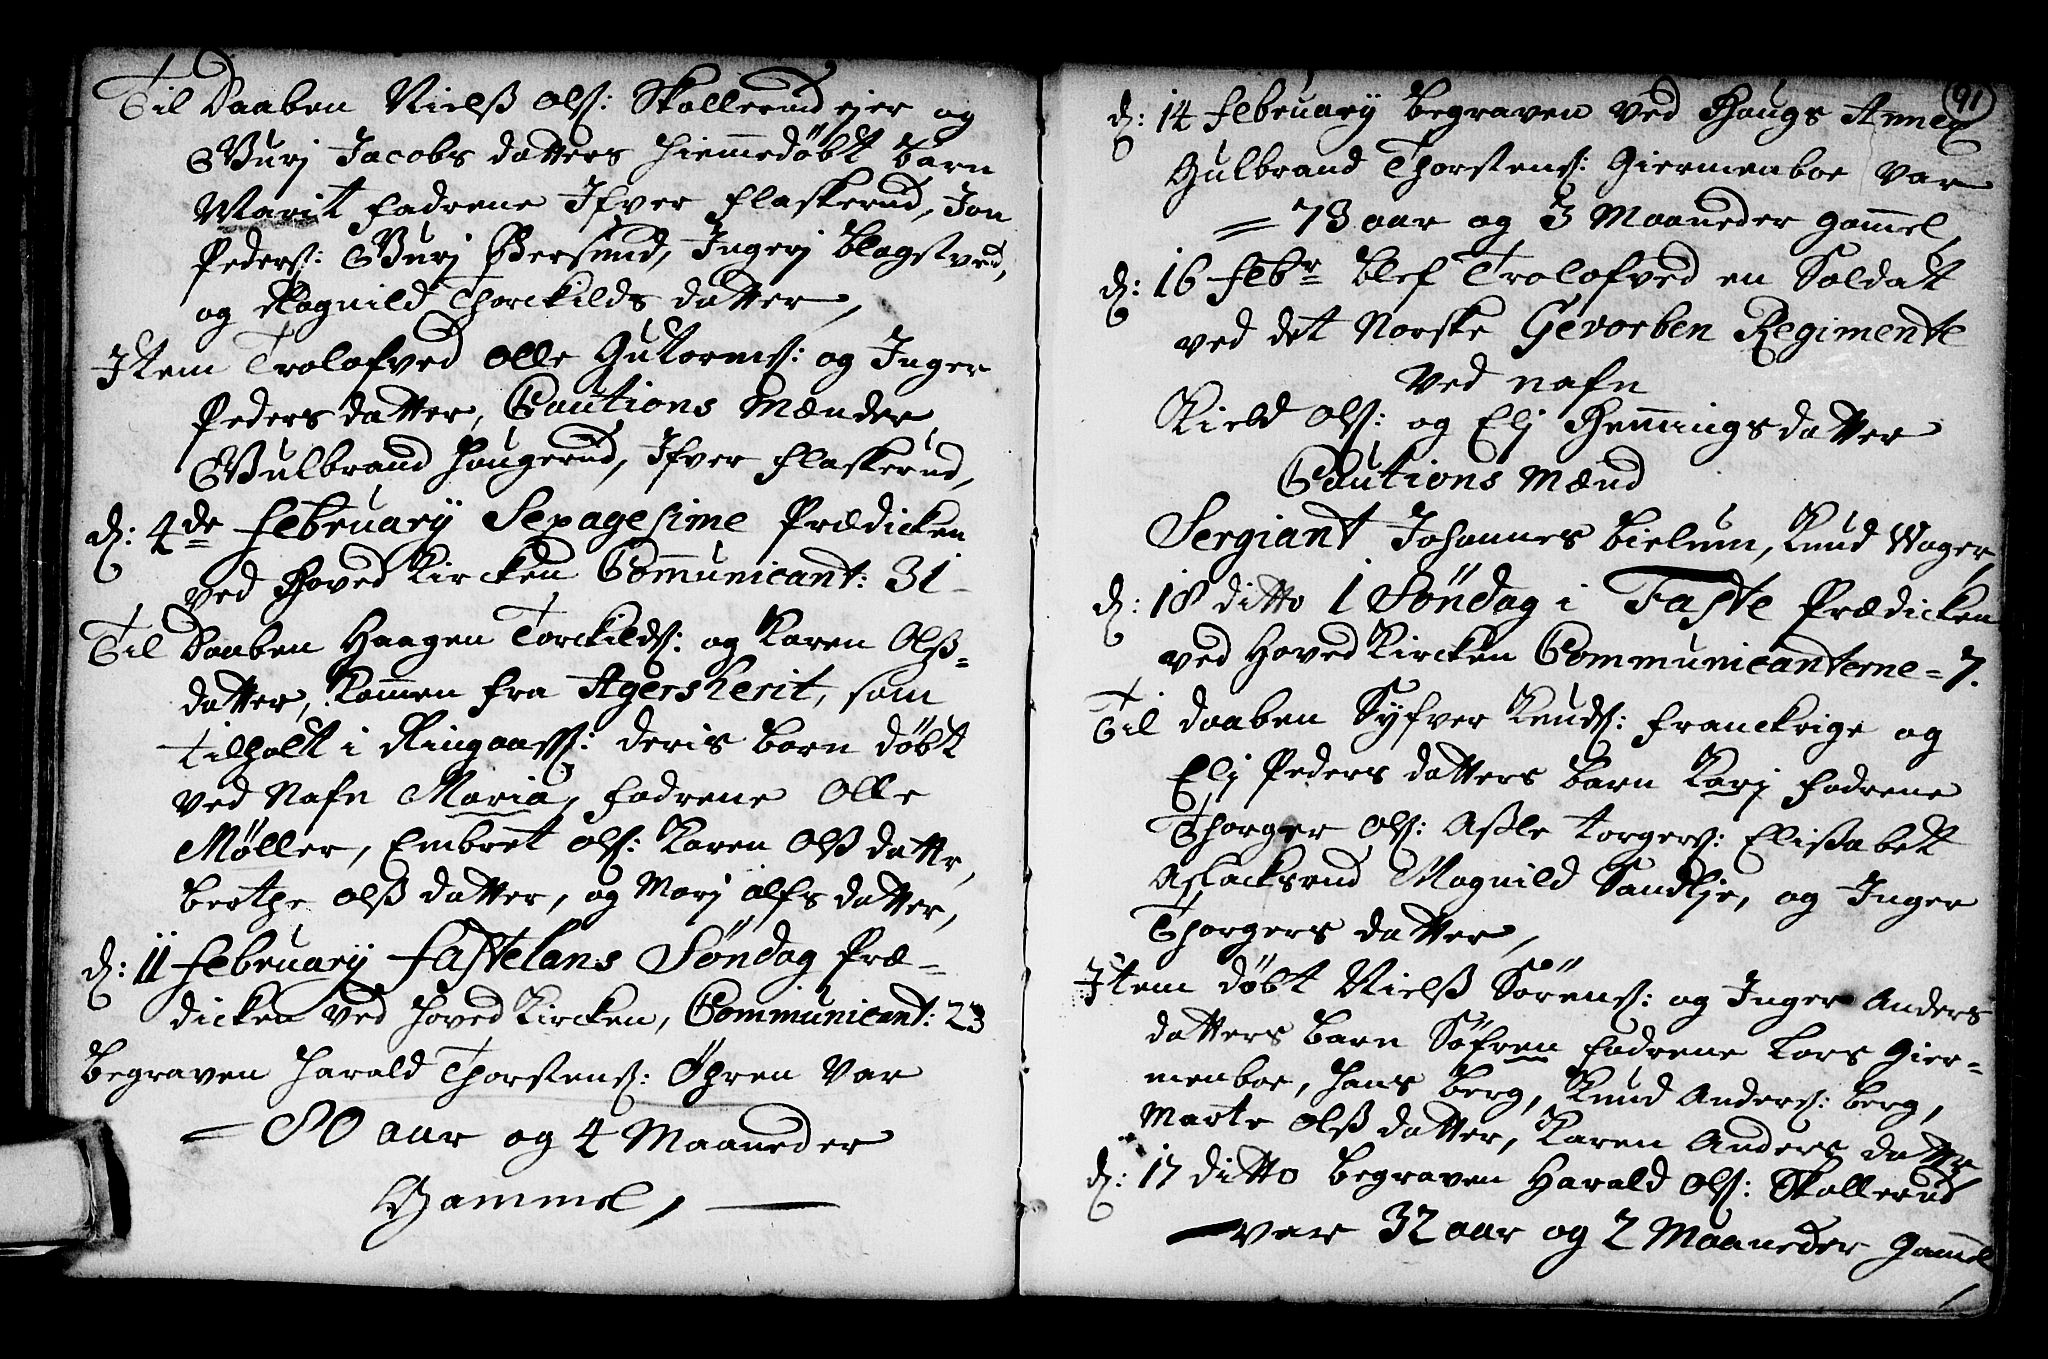 Til Daaben Nielß Ols: Skollerud ejer og
Gurj Jacobs datters hiemmedöbt barn
Marit fadrene Ifver Flaskerud, Jon
Peders: Gurj Bersund, Ingerj
og Ragnild Thorckilds datter,
Item Trolofved Olle Gutorms: og Inger
Peders datter, Cautions Mænder
Gulbrand Haugerud, Ifver Flaskerud,
d: 4de February Sexagesime Prædicken
ved Hoved Kircken Communicant: 31
Til Daaben Haagen Torckilds: og Karen Olß-
datter, kommen fra Agersherit, som
tilholt i Ringaass: deris barn döbt
ved Nafn Maria, fadrene Olle
Møller, Embret Ols: Karen Olß dattr,
Berthe Olß datter, og Marj Alfs datter,
d: 11 February Fastelans Søndag Præ-
dicken ved Hoved Kircken, Communicant: 23
Begraven Harald Thorstens: Öhren var
= 80 aar og 4 Maaneder
Gammel,
91
d: 14 February begraven ved Haugs Annex
Gulbrand Thorstens: Giermenboe var
= 73 aar og 3 Maaneder gammel,
d: 16 Febr blef Trolofved en Soldat
ved det Norske Gevorben Regimente
ved nafn
Kield Ols: og Elj Hemmingsdatter
Cautions Mænd
Sergiant Johannes Bielum, Knud Wager,
d: 18 ditto 1 Söndag i Faste Prædicken
ved Hoved Kircken Communicanterne = 7.
Til daaben Syfver Knuds: Franckrige og
Elj Peders datters barn Karj fadrene
Thorger Ols: Aßle Torgers: Elisabet
Aslacksrud Magnild Sandtje, og Inger
Thorgers datter,
Item döbt Nielß Sörens: og Inger Anders
datters barn Söfren fadrene Lars Gier-
menboe, Hans Berg, Knud Anders: Berg,
Marte Olß datter, Karen Anders datter,
d: 17 ditto begraven Harald Ols: Skollerud
var 32 aar og 2 Maaneder gammel